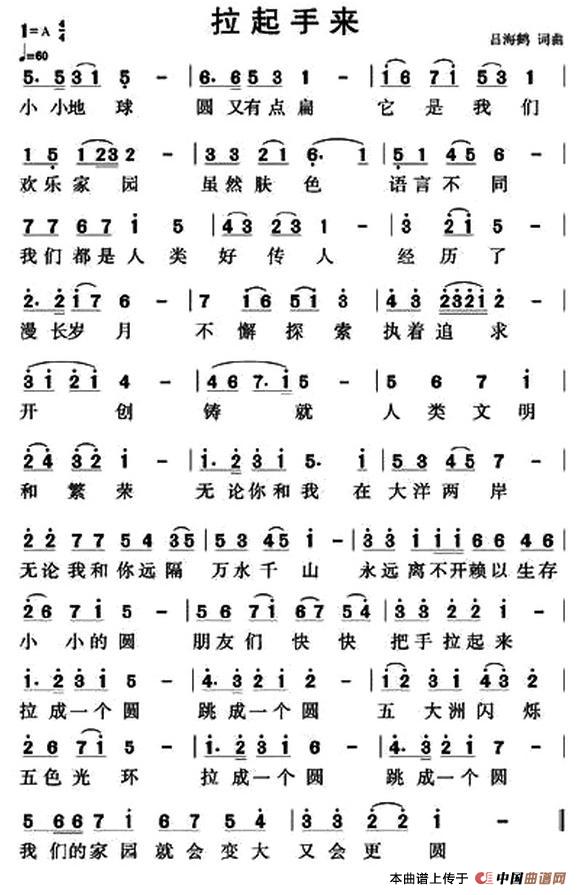 拉起手来
1=A 4/4
♩=60
吕海鹤 词曲
5. 5 3 1 5 - | 6. 6 5 3 1 - | 1 6 7 1 5 3 1 |
小 小地 球 圆 又有点 扁 它 是 我 们
1 5 1 2 3 2 - | 3 3 2 1 6. 1 | 5 1 4 5 6 - |
欢乐家 园 虽然肤 色 语言不 同
7 7 6 7 1 5 | 4 3 2 3 1 - | 3 2 1 5 - |
我们都是人 类 好 传 人 经 历 了
2. 2 1 7 6 - | 7 1 6 5 1 3 | 4 3 2 3 2 1 2 - |
漫 长岁 月 不 懈 探 索 执着 追 求
3 1 2 1 4 - | 4 6 7. 1 5 - | 5 6 7 1 |
开 创 铸 就 人 类 文 明
2 4 3 2 1 - | 1. 2 3 1 5. 1 | 5 3 4 5 7 - |
和 繁 荣 无 论你和我 在 大洋两 岸
2 2 7 7 5 4 3 5 | 5 3 4 5 1 - | 3 3 1 1 1 6 6 4 6 |
无论我和你远隔 万水千 山 永远离不开赖以生存
2 6 7 1 5 - | 5 6 7 1 6 7 5 4 | 3 3 2 2 1 - |
小 小的 圆 朋友们 快 快 把手拉起来
1. 2 3 1 5 - | 4. 3 2 1 2 - | 1 2 3 1 4 5 - |
拉 成一个圆 跳 成一个 圆 五 大洲闪 烁
2 6 7 1 5 - | 1. 2 3 1 5 - | 4. 3 2 1 5 - |
五色光 环 拉 成一个 圆 跳 成一个圆
5 6 6 7 1 6 7 5 4 | 3 3 2 2 - | 1 - - - ‖
我们的家园就会 变大 又会更 圆
本曲谱上传于 中国曲谱网